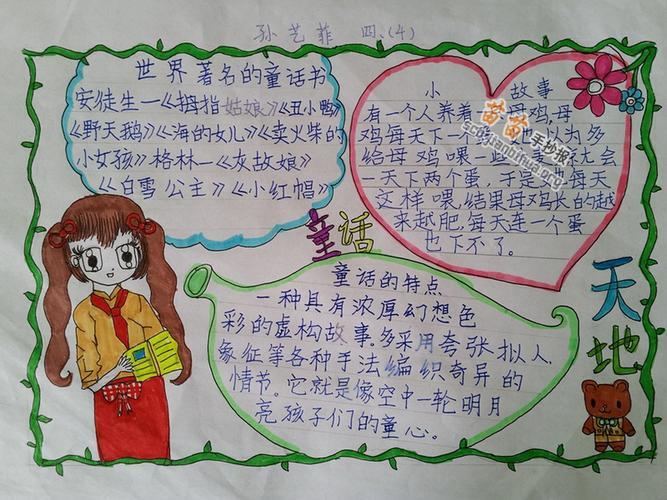 孙艺菲 四、(4)
世界著名的童话书
安徒生—《拇指姑娘》《丑小鸭》
《野天鹅》《海的女儿》《卖火柴的
小女孩》格林—《灰故娘》
《白雪公主》《小红帽》
小 故事
有一个人养着 母鸡,母
鸡每天下一 以为多
给母鸡喂一些 就会
一天下两个蛋,于是她每天
这样喂,结果母鸡长的越
来越肥,每天连一个蛋
也下不了。
苗苗手抄报
童话
童话的特点
一种具有浓厚幻想色
彩的虚构故事,多采用夸张拟人、
象征等各种手法编织奇异的
情节。它就是像空中一轮明月
亮孩子们的童心。
天地